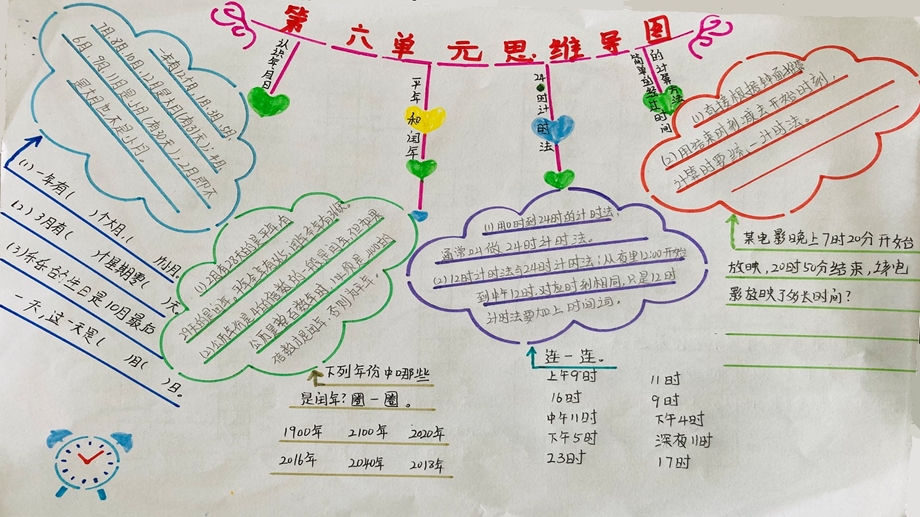 第六单元思维导图
认识年月日
平年和闰年
24时计时法
简单的经过时间
的计算方法
一年有12个月,1月、3月、5月、
7月、8月、10月、12月是大月(有31天);4月、
6月、9月、11月是小月(有30天);2月即不
是大月也不是小月。
(1)一年有( )个大月,( )小月。
(2)3月有( )个星期零( )天。
(3)乐乐的生日是10月最后
一天,这一天是( )月( )日。
(1)2月有28天的是平年,有
29天的是闰年。平年全年有365天,闰年全年有366天。
(2)公历年份是4的倍数的一般是闰年,但如果
公历是整百数年时,必须是400的
倍数才是闰年,否则为平年。
下列年份中哪些
是闰年?圈一圈。
1900年 2100年 2020年
2016年 2040年 2018年
(1)用0时到24时的计时法,
通常叫做24时计时法。
(2)12时计时法与24时计时法:从夜里12:00开始
到中午12时,对应时刻相同,只是12时
计时法要加上时间词。
连一连。
上午9时 11时
16时 9时
中午11时 下午4时
下午5时 深夜11时
23时 17时
(1)直接根据钟面推算
(2)用结束时刻减去开始时刻,
计算时要统一计时法。
某电影晚上7时20分开始
放映,20时50分结束,
影放映了多长时间?